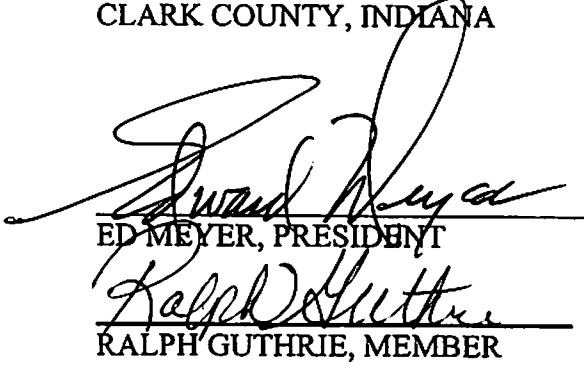 CLARK COUNTY, INDIANA
Edward Meyer
ED MEYER, PRESIDENT
Ralph Guthrie
RALPH GUTHRIE, MEMBER